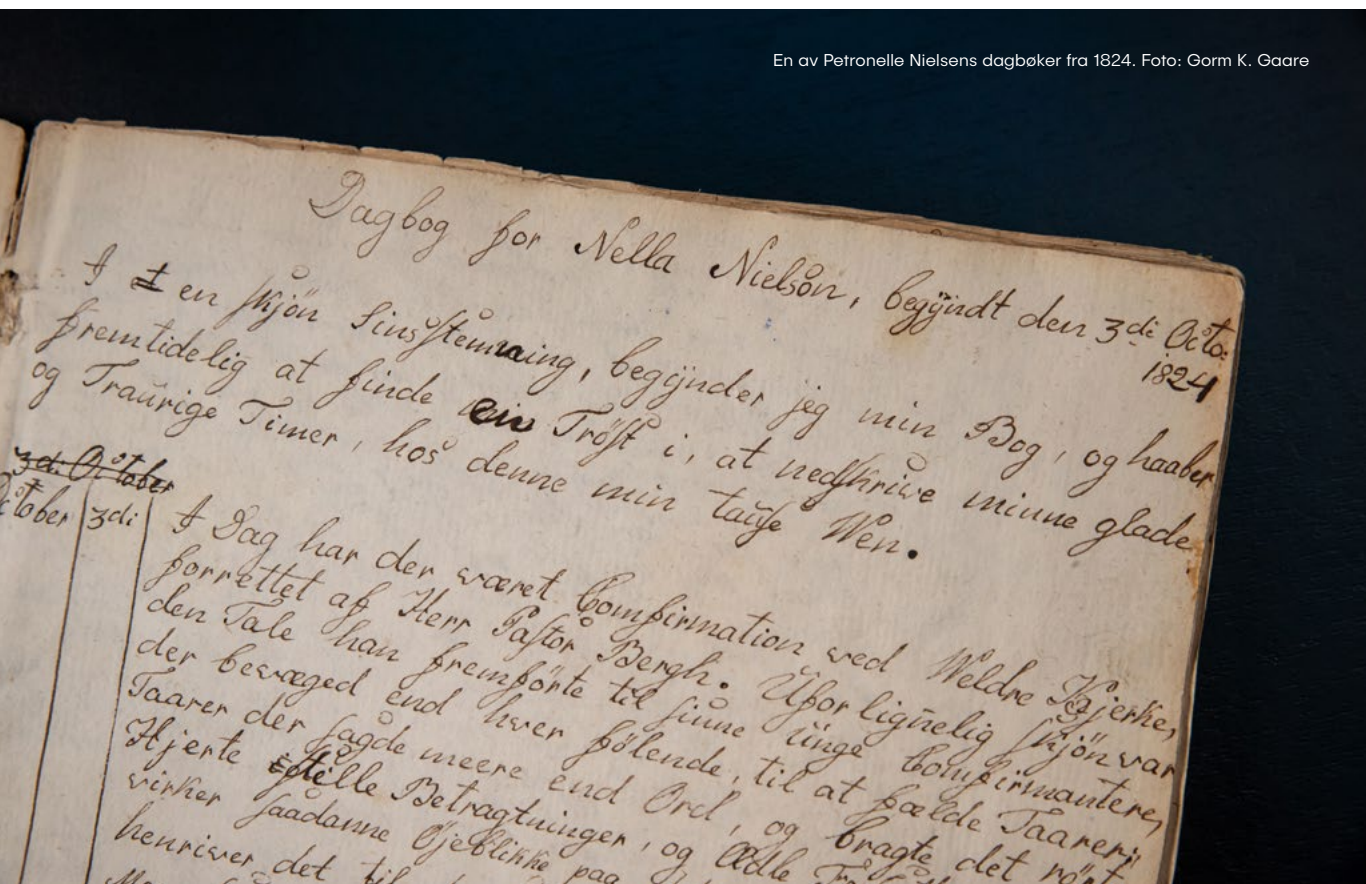 En av Petronelle Nielsens dagbøker fra 1824. Foto: Gorm K. Gaare
Dagbog for Nella Nielsøn, begÿndt den 3di Octo:
1824
I en skjön Sinsstemning, begÿnder jeg min Bog, og haaber
fremtidelig at finde Tröst i, at nedskrive minne glade
og Traurige Timer, hos denne min tause Wen.
3di October
October 3di
I Dag har der været Comfirmation ved Weldre Kjerke,
forrettet af Herr Pastor Bergh. Uforlignelig skjön var
den Tale han fremförte til sinne unge Comfirmantere,
der bevæged end hver fölende, til at fælde Taarer;
Taarer der sagde meere end Ord, og bragte det rört
Hjerte stille Betragtninger, og Ædle
virker saadanne Öjeblikke paa
henriver det til